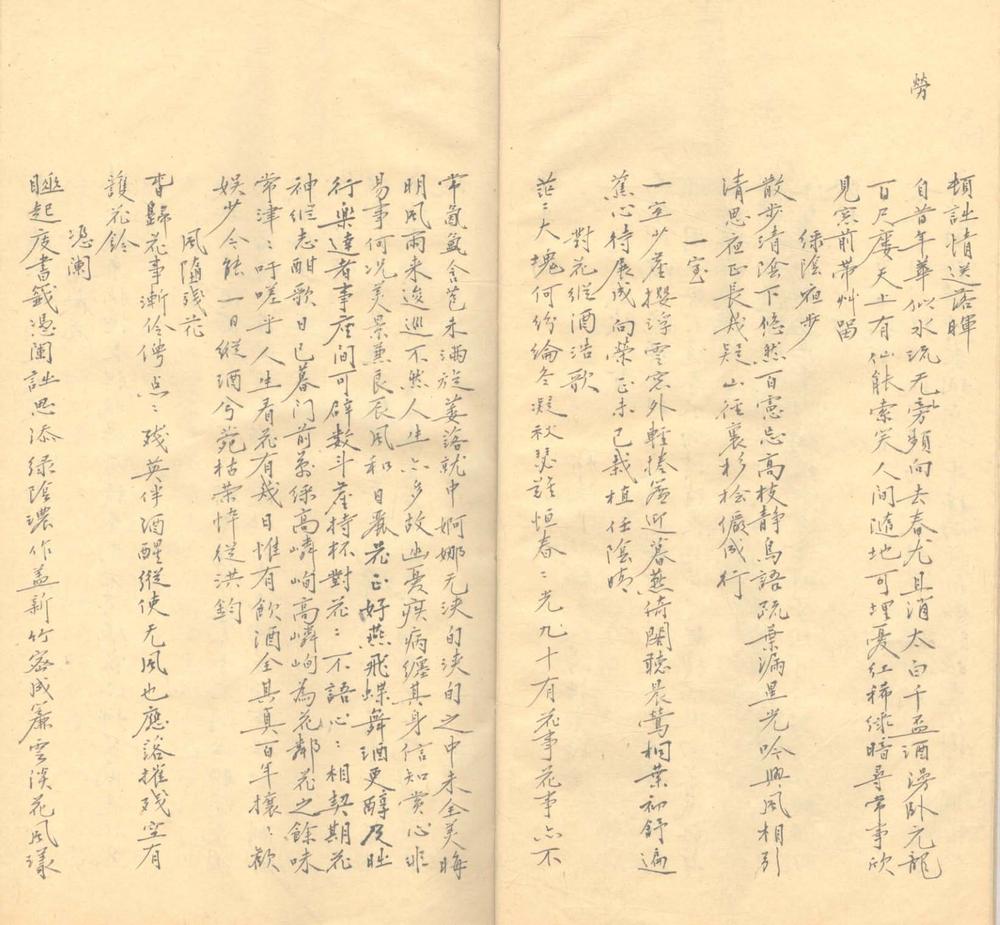 勞
頓詘情送落暉
自昔年華似水流无旁頻向去春尤且消太白千盃酒漫臥元龍
百尺廔天上有仙能索笑人間隨地可埋憂紅稀綠暗尋常事欣
見窓前帶艸留
綠陰夜步
散步清陰下悠然百慮忘高枝靜鳥語疏葉漏星光吟興風相引
清思夜正長哉疑山徑裏杉桧儼成行
一室
一室少塵攖浮雲窓外輕捲簾迎暮燕倚闌聽晨鶯桐葉初舒遍
蕉心待展成向榮正未已栽植任陰晴
對花縱酒浩歌
茫二大塊何紛綸冬凝秋瑟難恒春二光九十有花事花事亦不
常氤氳含苞未滿旋萋落就中婀娜无泱的泱的之中未全美晦
明風雨來逡巡不然人生亦多故幽憂疾病纏其身信知賞心非
易事何況美景兼良辰風和日麗花正好燕飛蝶舞酒更醇及時
行樂達者事座間可辟數斗塵持杯對花二不語心二相契期花
神縱志酣歌日已暮門前萬綠高嶙峋高嶙峋為花鄰花之餘味
常津二吁嗟乎人生看花有幾日惟有飲酒全其真百年攘二歡
娱少今能一日縱酒兮菀枯榮悴從洪鈞
風隨殘花
春歸花事漸伶俜点二殘英伴酒醒縱使无風也應落摧殘空有
護花鈴
憑闌
睡起废書籤憑闌詘思添綠陰濃作盖新竹密成簾雲淡花風漾